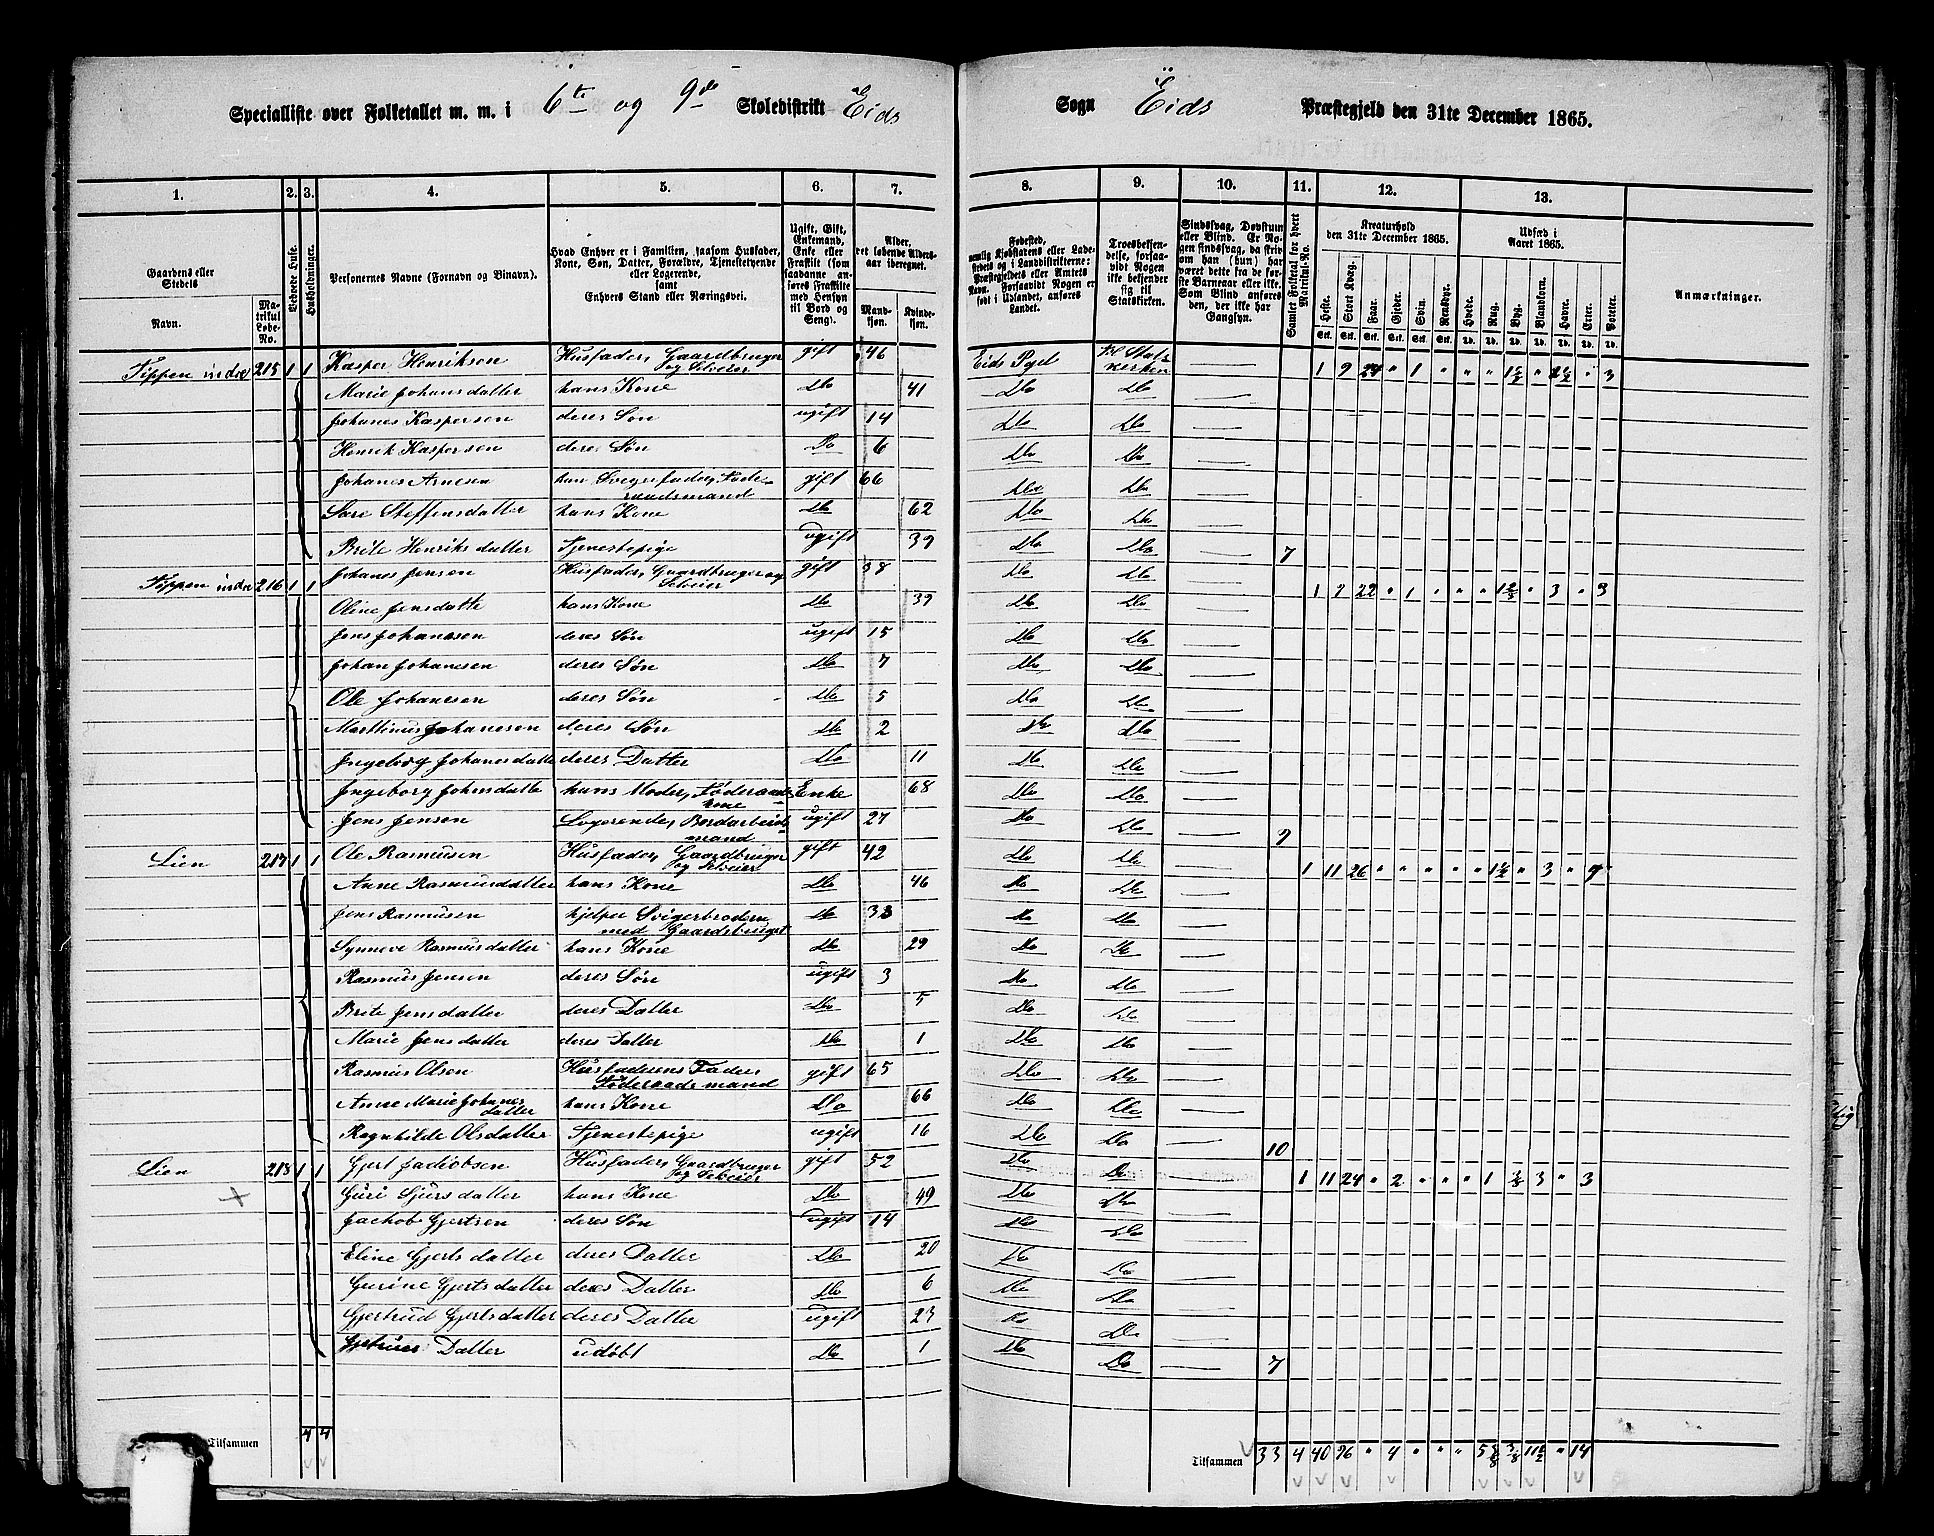 Specialliste over Folketallet m. m. i 6te og 9de Skoledistrikt Eids Sogn Eids Præstegjeld den 31te December 1865.
1. 2. 3. 4. 5. 6. 7. 8. 9. 10. 11. 12. 13.
Gaardens eller Stedets
Navn.
Matrikul Løbe-No.
Beboede Huse.
Husholdninger.
Personernes Navne (Fornavn og Binavn).
Hvad Enhver er i Familien, saasom Husfader,
Kone, Søn, Datter, Forældre, Tjenestetyende
eller Logerende,
samt
Enhvers Stand eller Næringsvei.
Ugift, Gift,
Enkemand,
Enke eller
Fraskilt (som
saadanne anføres Fraskilte
med Hensyn
til Bord og
Seng).
Alder,
det løbende Aldersaar iberegnet.
Mandkjøn. Kvindekjøn.
Fødested,
Troesbekjendelse, forsaavidt Nogen
ikke bekjender
sig til
Statskirken.
Sindssvag, Døvstum
eller Blind.
Samlet Folketal for hvert Matrikul-No.
Kreaturhold
den 31te December 1865.
Heste. Stort Kvæg. Faar. Gjeder. Svin. Rensdyr.
Udsæd i
Aaret 1865.
Hvede. Rug. Byg. Blandkorn. Havre. Erter. Poteter.
Anmærkninger.
Tippen indre 215 1 1 Kasper Henriksen Husfader, Gaardbruger og Selveier gift 46 Eids Pgel til Statskirken
Marie Johansdatter hans Kone Do 41 Do Do
Johanes Kaspersen deres Søn ugift 14 Do Do
Henrik Kaspersen deres Søn Do 6 Do Do
Johanes Arnesen hans Svigerfader, Føderaadsmand gift 66 Do Do
Sare Steffensdatter hans Kone Do 62 Do Do
Brite Henriksdatter Tjenestepige ugift 39 Do Do 7
Tippen indre 216 1 1 Johanes Jensen Husfader, Gaardbruger og Selveier gift 38 Do Do
Oline Jensdatte hans Kone Do 39 Do Do
Jens Johanesen deres Søn ugift 15 Do Do
Johan Johanesen deres Søn Do 7 Do Do
Ole Johanesen deres Søn Do 5 Do Do
Marttinus Johanesen deres Søn Do 2 Do Do
Ingeborg Johanesdatte deres Datter Do 11 Do Do
Ingeborg Johnsdatte hans Moder, Føderaadskone Enke 68 Do Do
Jens Jensen Logerende, Bordarbeidsmand ugift 27 Do Do 9
Lien 217 1 1 Ole Rasmusen Husfader, Gaardbruger og Selveier gift 42 Do Do
1 11 26 " " " " " 1½ " 3 "
Anne Rasmusdatter hans Kone Do 46 Do Do
Jens Rasmusen hjelper Svigerbroderen med Gaardsbruget Do 33 Do Do
Synneve Rasmusdatter hans Kone Do 29 Do Do
Rasmus Jensen deres Søn ugift 3 Do Do
Brite Jensdatter deres Datter Do 5 Do Do
Marie Jensdatter deres Datter Do 1 Do Do
Rasmus Olsen Husfaderens Fader Føderaadsmand gift 65 Do Do
Anne Marie Johanesdatter hans Kone Do 66 Do Do
Ragnhilde Olsdatter Tjenestepige ugift 16 Do Do 10
Lien 218 1 1 Gjert Jachobsen Husfader, Gaardbruger og Selveier gift 52 Do Do
1 11 24 " 2 " " " 1 3 " 3
Guri Sjursdatter hans Kone Do 49 Do Do
Jachob Gjertsen deres Søn ugift 14 Do Do
Eline Gjertsdatter deres Datter Do 20 Do Do
Gurine Gjertsdatter deres Datter Do 6 Do Do
Gjertrud Gjertsdatter deres Datter ugift 23 Do Do
Datter udøbt Do 1 Do Do 7
Tilsammen 4 4
Tilsammen 33 4 40 96 " 4 " " " 5 11½ " 14